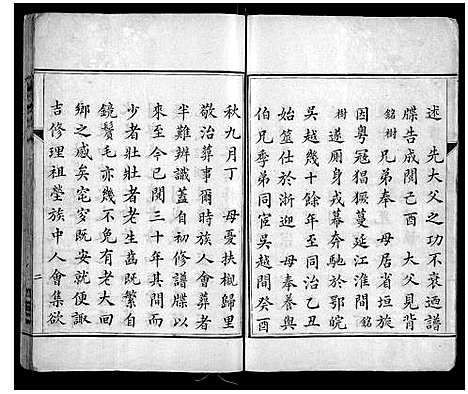 述　先大父之功不衰迺譜
牒告成閱己酉　大父見背
銘樹兄弟奉　母居省垣旋
因粵冠猖獗蔓延江淮間銘
樹遂厠身戎幕奔馳於鄂皖
吳越幾十餘年至同治乙丑
始簉仕於浙迎　母奉養與
伯兄季弟同宦吳越間癸酉
秋九月丁　母憂扶櫬歸里
敬治葬事爾時族人會葬者
半難辨識蓋自初修譜牒以
來至今已閱三十年其間而
少者壯壯者老生齒既繁自
鏡鬢毛亦幾不免有老大回
鄉之感矣窀穸既安就便諏
吉修理祖塋族中人會集欲
二